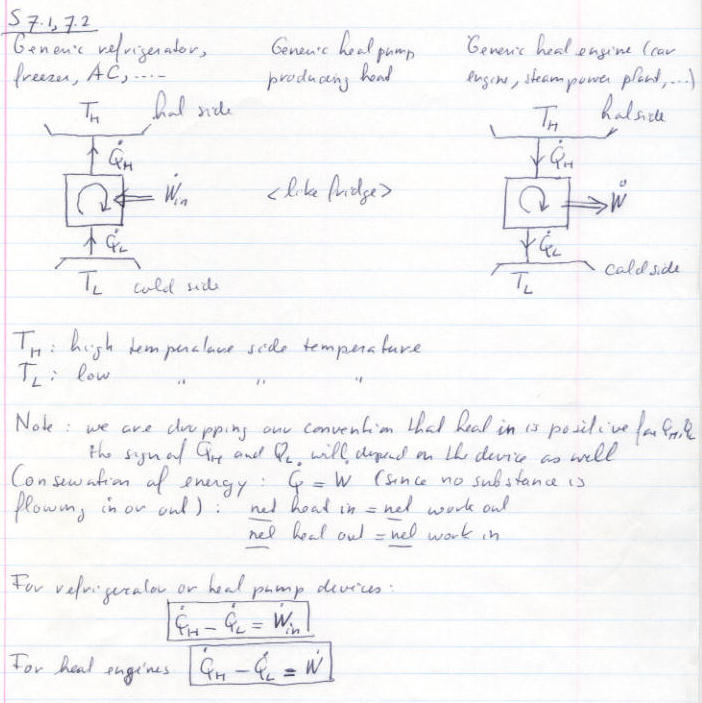 S 7.1, 7.2
Generic refrigerator,
freezer, AC, ....
Generic heat pump
producing heat
Generic heat engine (car
engine, steam power plant, ...)
T_H hot side
Q̇_H
Ẇ_in
Q̇_L
T_L cold side
<like fridge>
T_H hot side
Q̇_H
Ẇ
Q̇_L
T_L cold side
T_H : high temperature side temperature
T_L : low " " "
Note : we are dropping our convention that heat in is positive for Q̇_H, Q̇_L
the sign of Q̇_H and Q̇_L will depend on the device as well
Conservation of energy : Q̇ = Ẇ (since no substance is
flowing in or out) : net heat in = net work out
net heat out = net work in
For refrigerator or heat pump devices:
Q̇_H - Q̇_L = Ẇ_in
For heat engines Q̇_H - Q̇_L = Ẇ